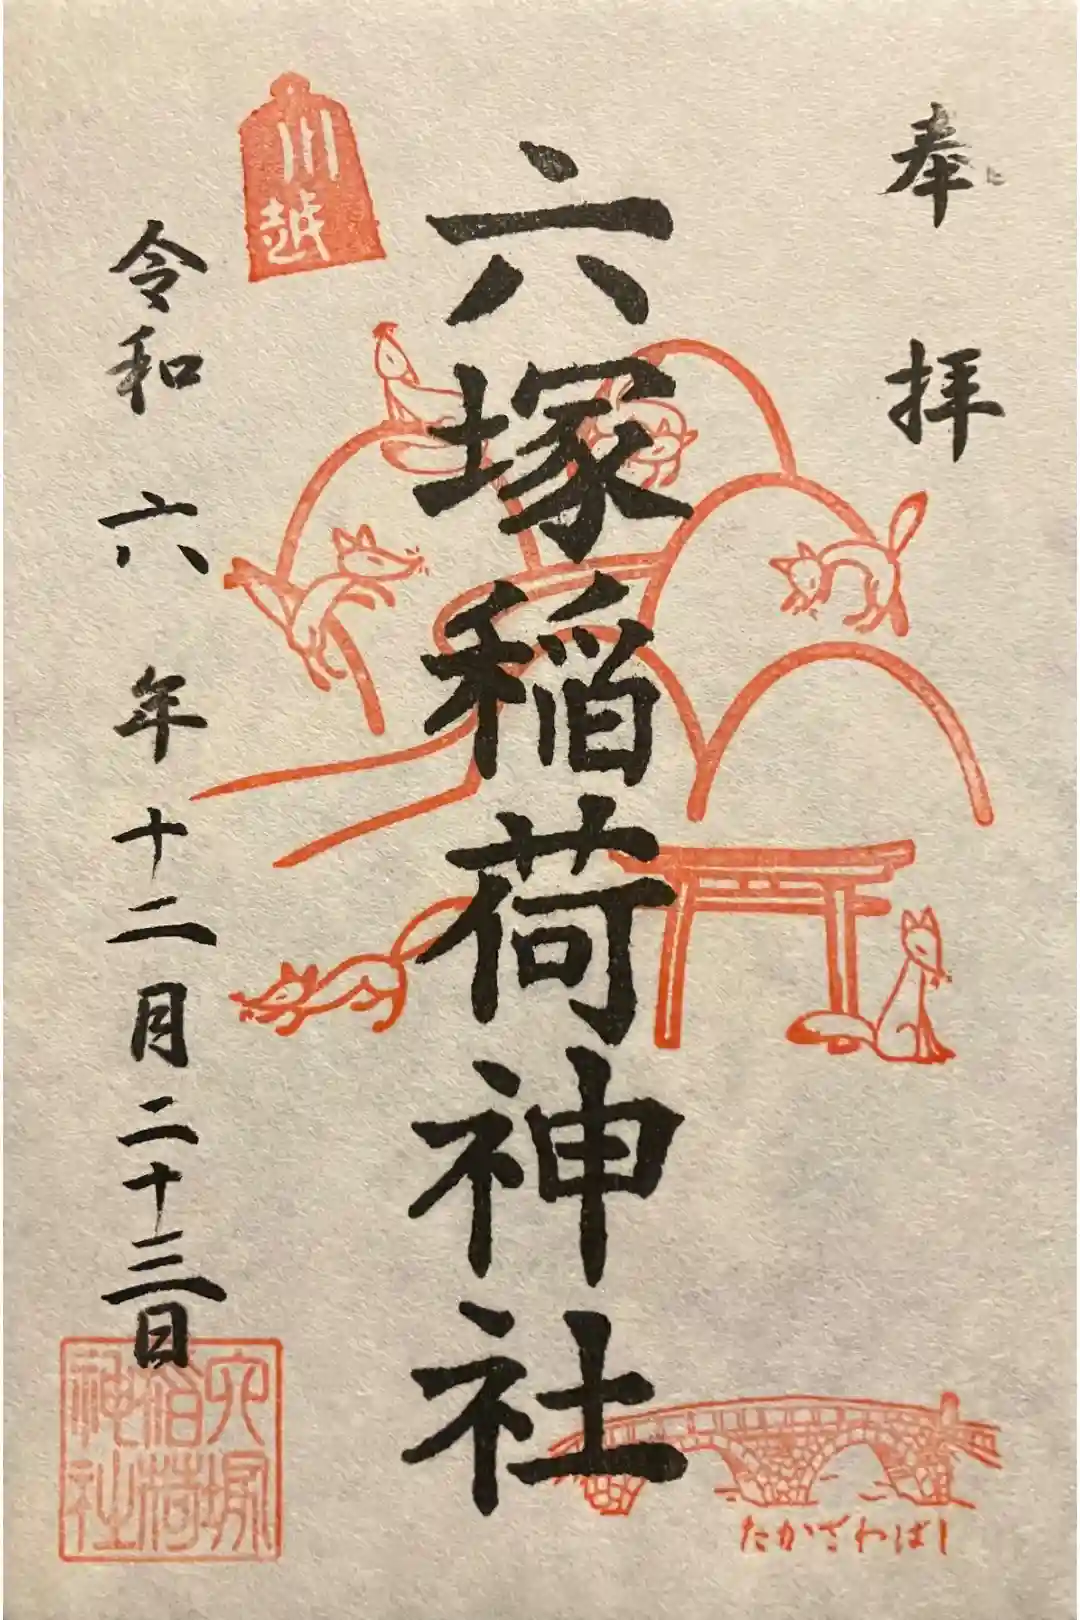 奉拝
川越
六塚稲荷神社
令和六年十二月二十三日
六塚稲荷神社
たかざわばし